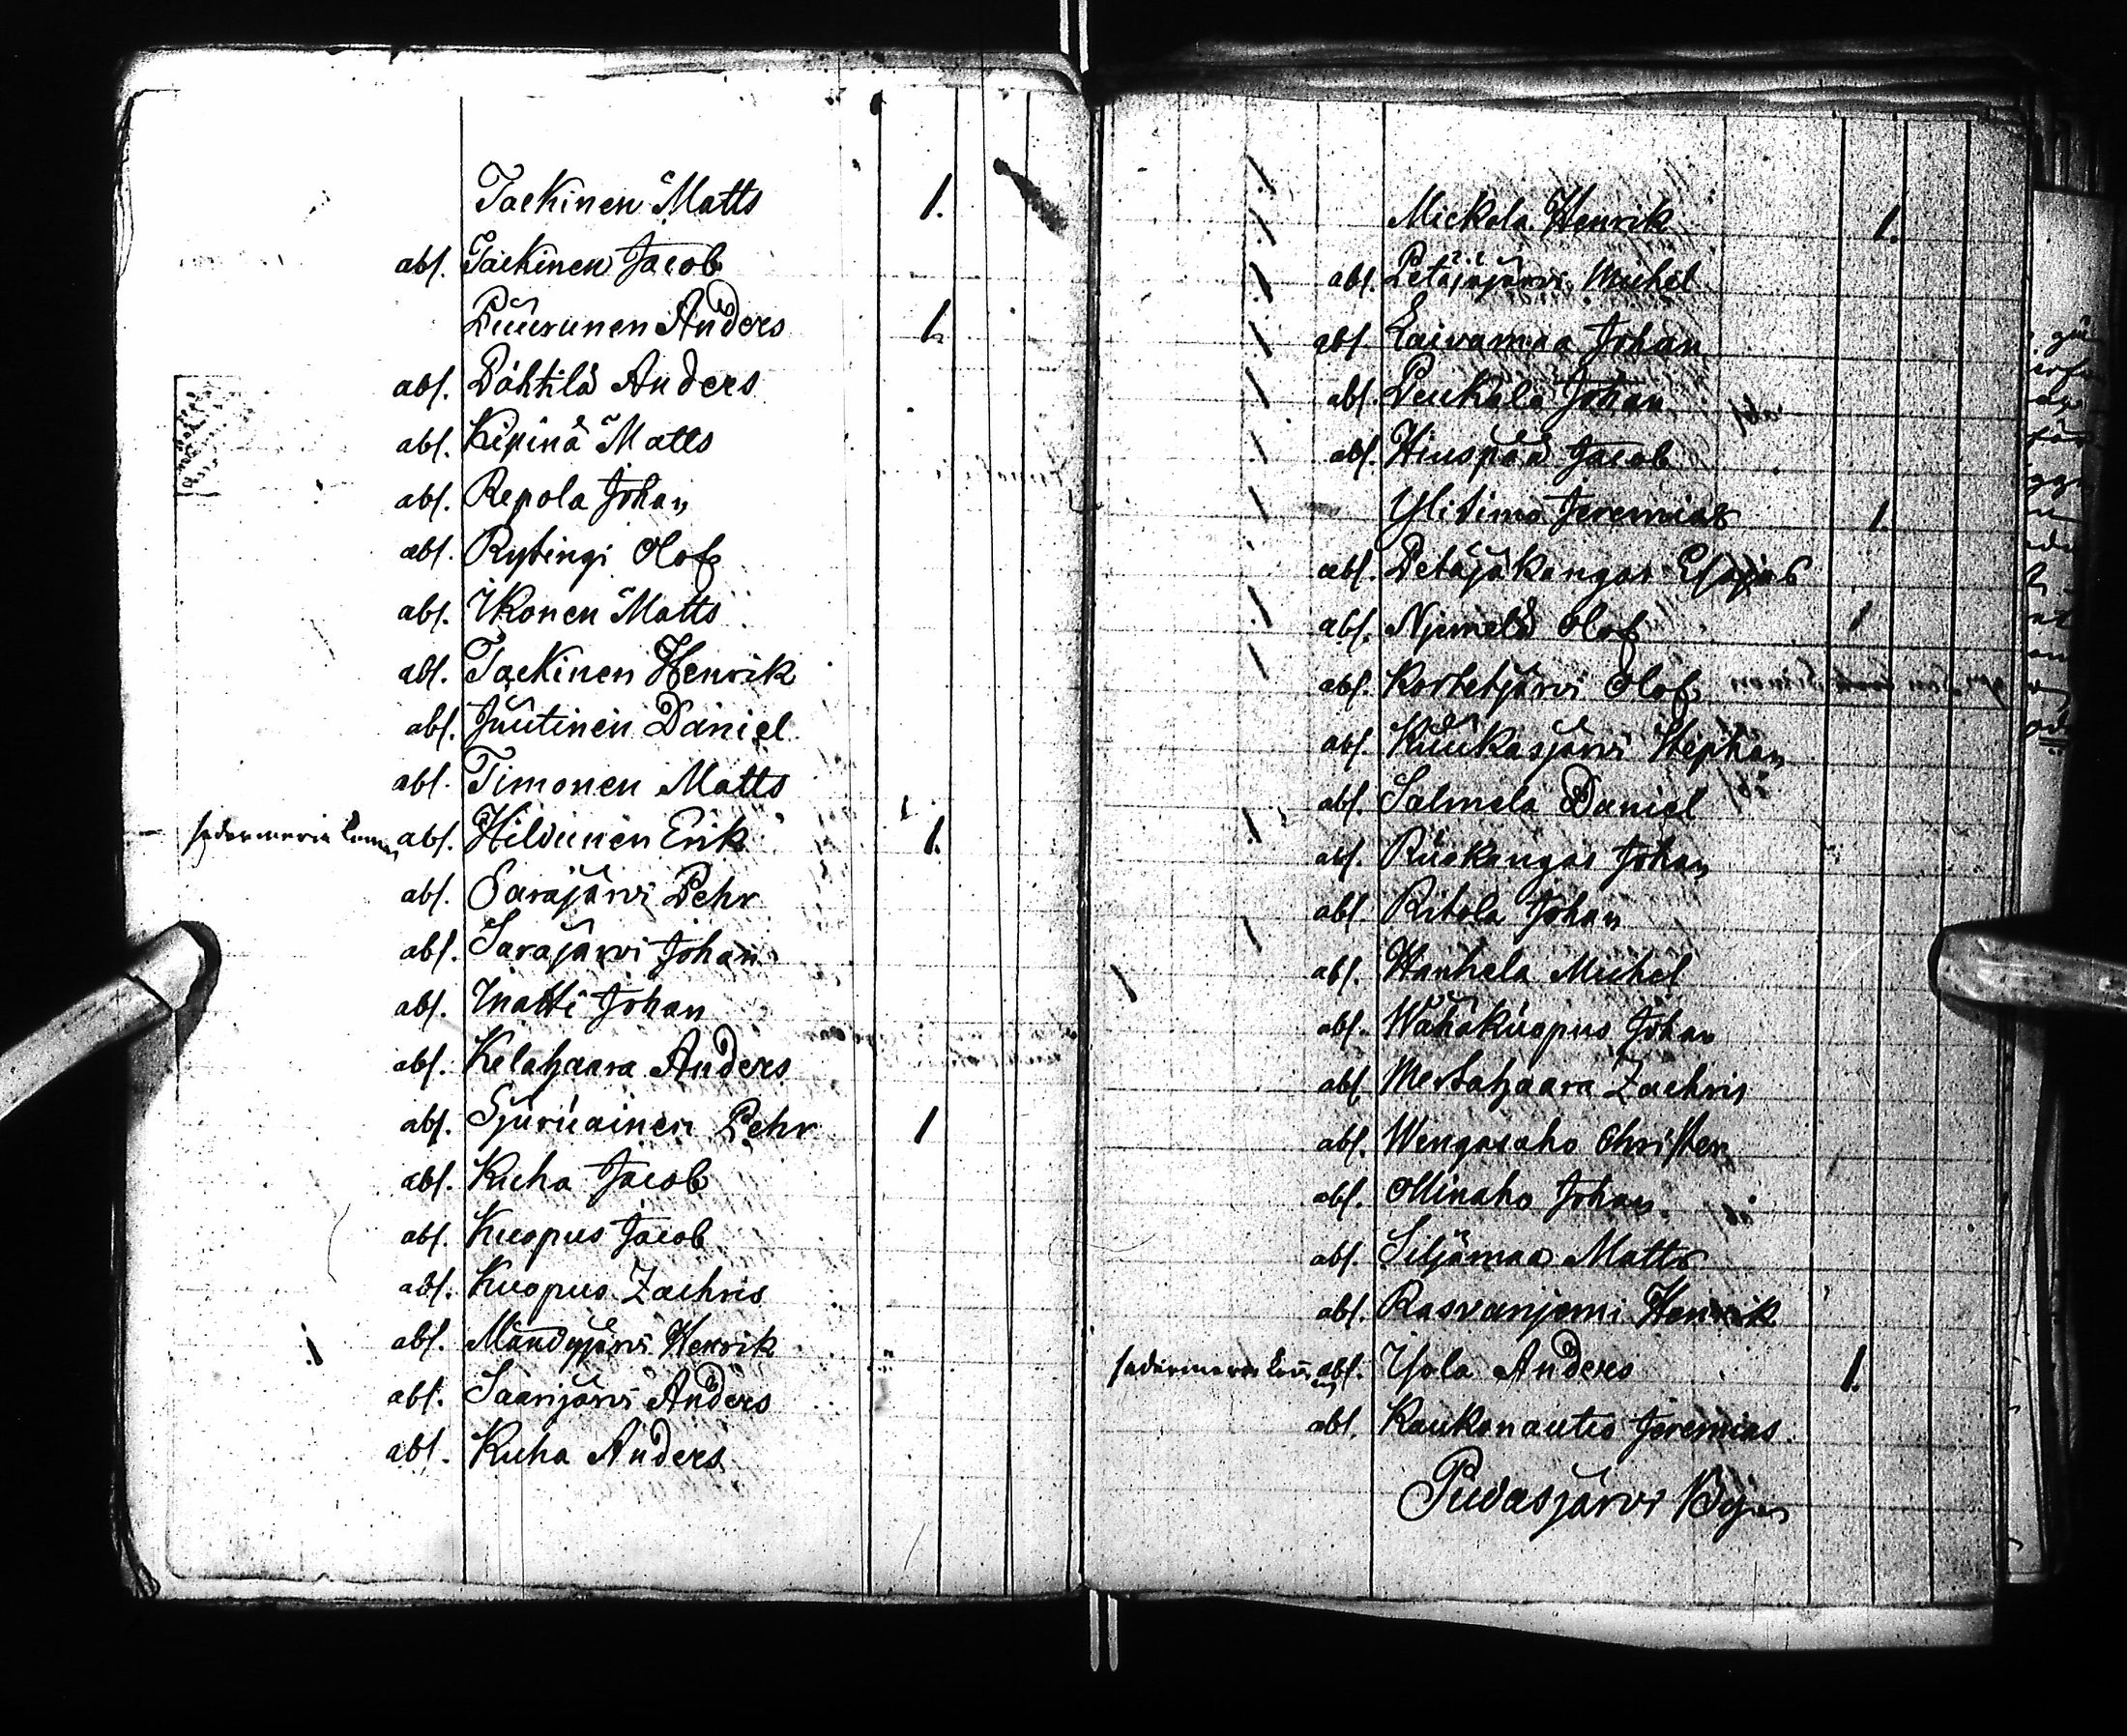 Taekinen Matts 1.
abs. Taekinen Jacob
Puurunen Anders 1.
abs. Pöhtilä Anders
abs. Kipinä Matts
abs. Repola Johan
abs. Rytingi Olof
abs. Ikonen Matts
abs. Taekinen Henrik
abs. Juutinen Daniel
abs. Timonen Matts
abs. Hilduinen Erik 1.
abs. Sarajärvi Pehr
abs. Sarajärvi Johan
abs. Inatti Johan
abs. Kelahaara Anders
abs. Sjuruainen Pehr 1
abs. Kuha Jacob
abs. Kuopus Jacob
abs. Kuopus Zachris
abs. Mändyjärvi Henrik
abs. Saarijärvi Anders
abs. Kuha Anders
Mickola Henrik 1.
abs. Petäjäjärvi Michel
abs. Laivamaa Johan
abs. Puukala Johan
abs. Hiuspää Jacob
Ylitimo Jeremias 1.
abs. Petäjäkangas Esajas
abs. Njemelä Olof 1
abs. Kortetjärvi Olof
abs. Kuukasjärvi Stephan
abs. Salmela Daniel
abs. Ruokangas Johan
abs. Ritola Johan
abs. Wanhela Michel
abs. Wähäkuopus Johan
abs. Mertahaara Zachris
abs. Wengasaho Christer
abs. Ollinaho Johan
abs. Siljämaa Matts
abs. Rasvanjemi Henrik
abs. Isola Anders 1.
abs. Kaukonautio Jeremias
Pudasjärvi By